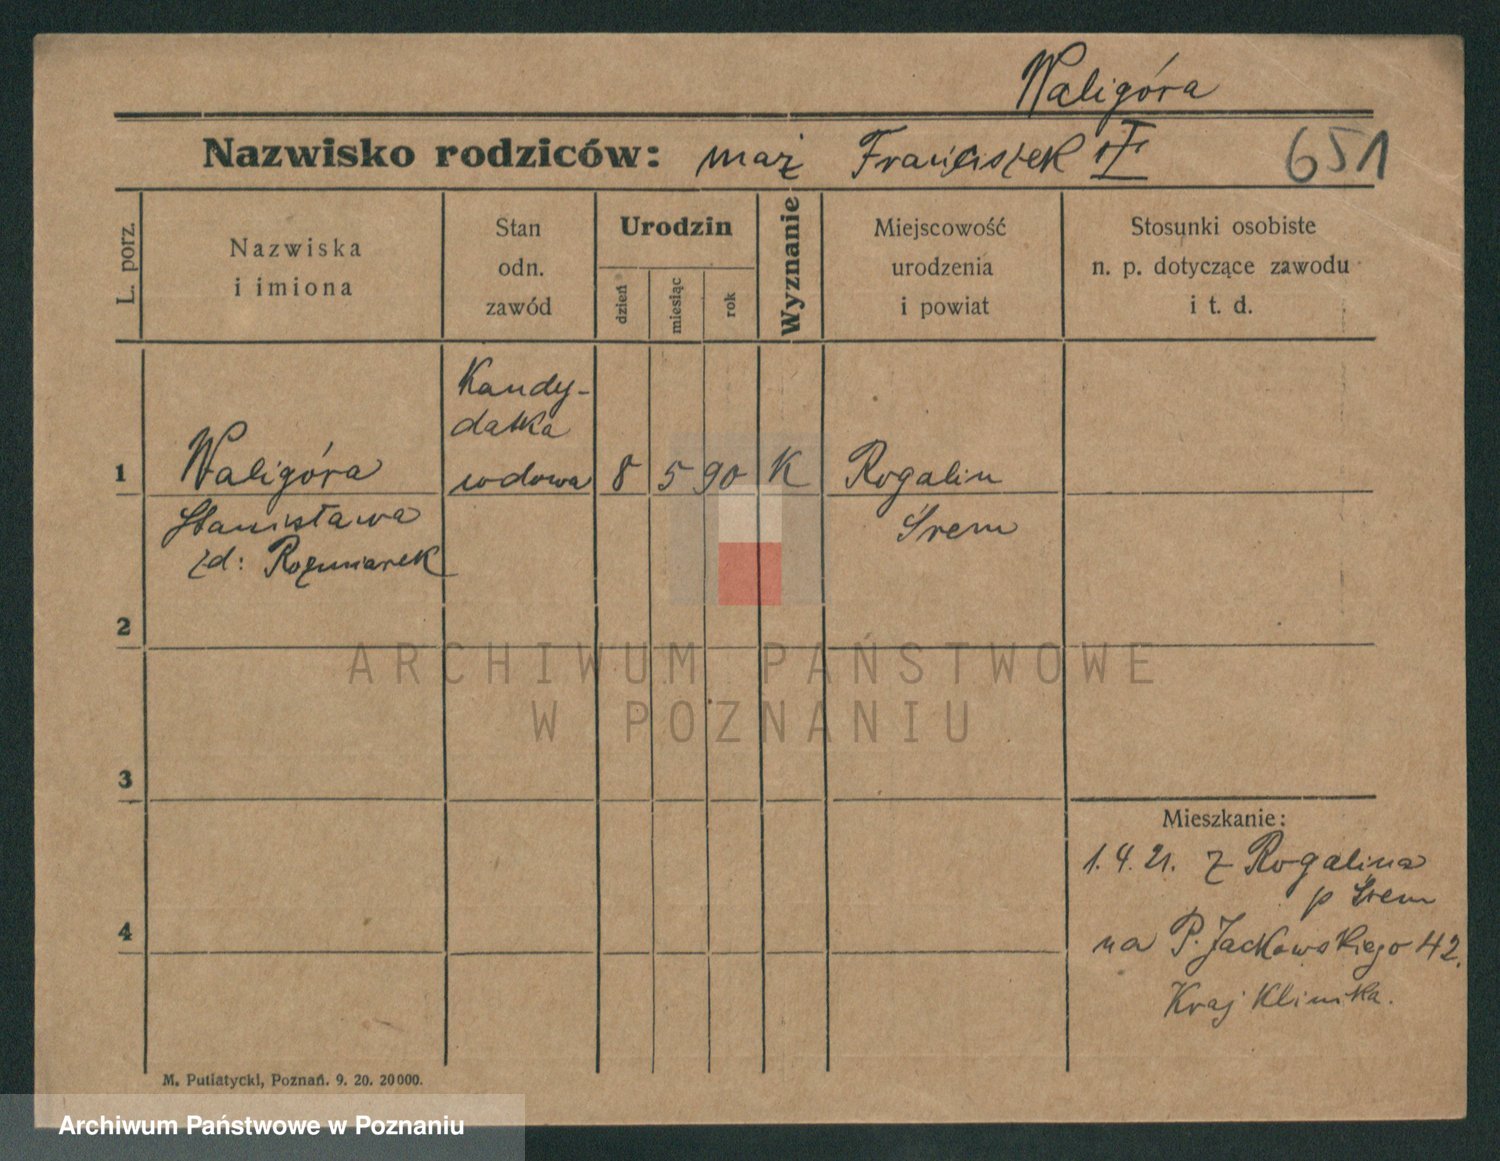 Waligóra
Nazwisko rodziców: mąż Franciszek
651
L. porz.
Nazwiska
i imiona
Stan
odn.
zawód
Urodzin
dzień
miesiąc
rok
Wyznanie
Miejscowość
urodzenia
i powiat
Stosunki osobiste
n. p. dotyczące zawodu
i t. d.
Kandy-
datka
1 Waligóra wdowa 8 5 90 K Rogalin
Stanisława Śrem
zd: Rozmiarek
2
3
4
Mieszkanie:
1.4.21. z Rogalina
p Śrem
na P. Jackowskiego 42.
Kraj Klinika.
M. Putiatycki, Poznań. 9. 20. 20000.
ARCHIWUM PAŃSTWOWE
W POZNANIU
Archiwum Państwowe w Poznaniu